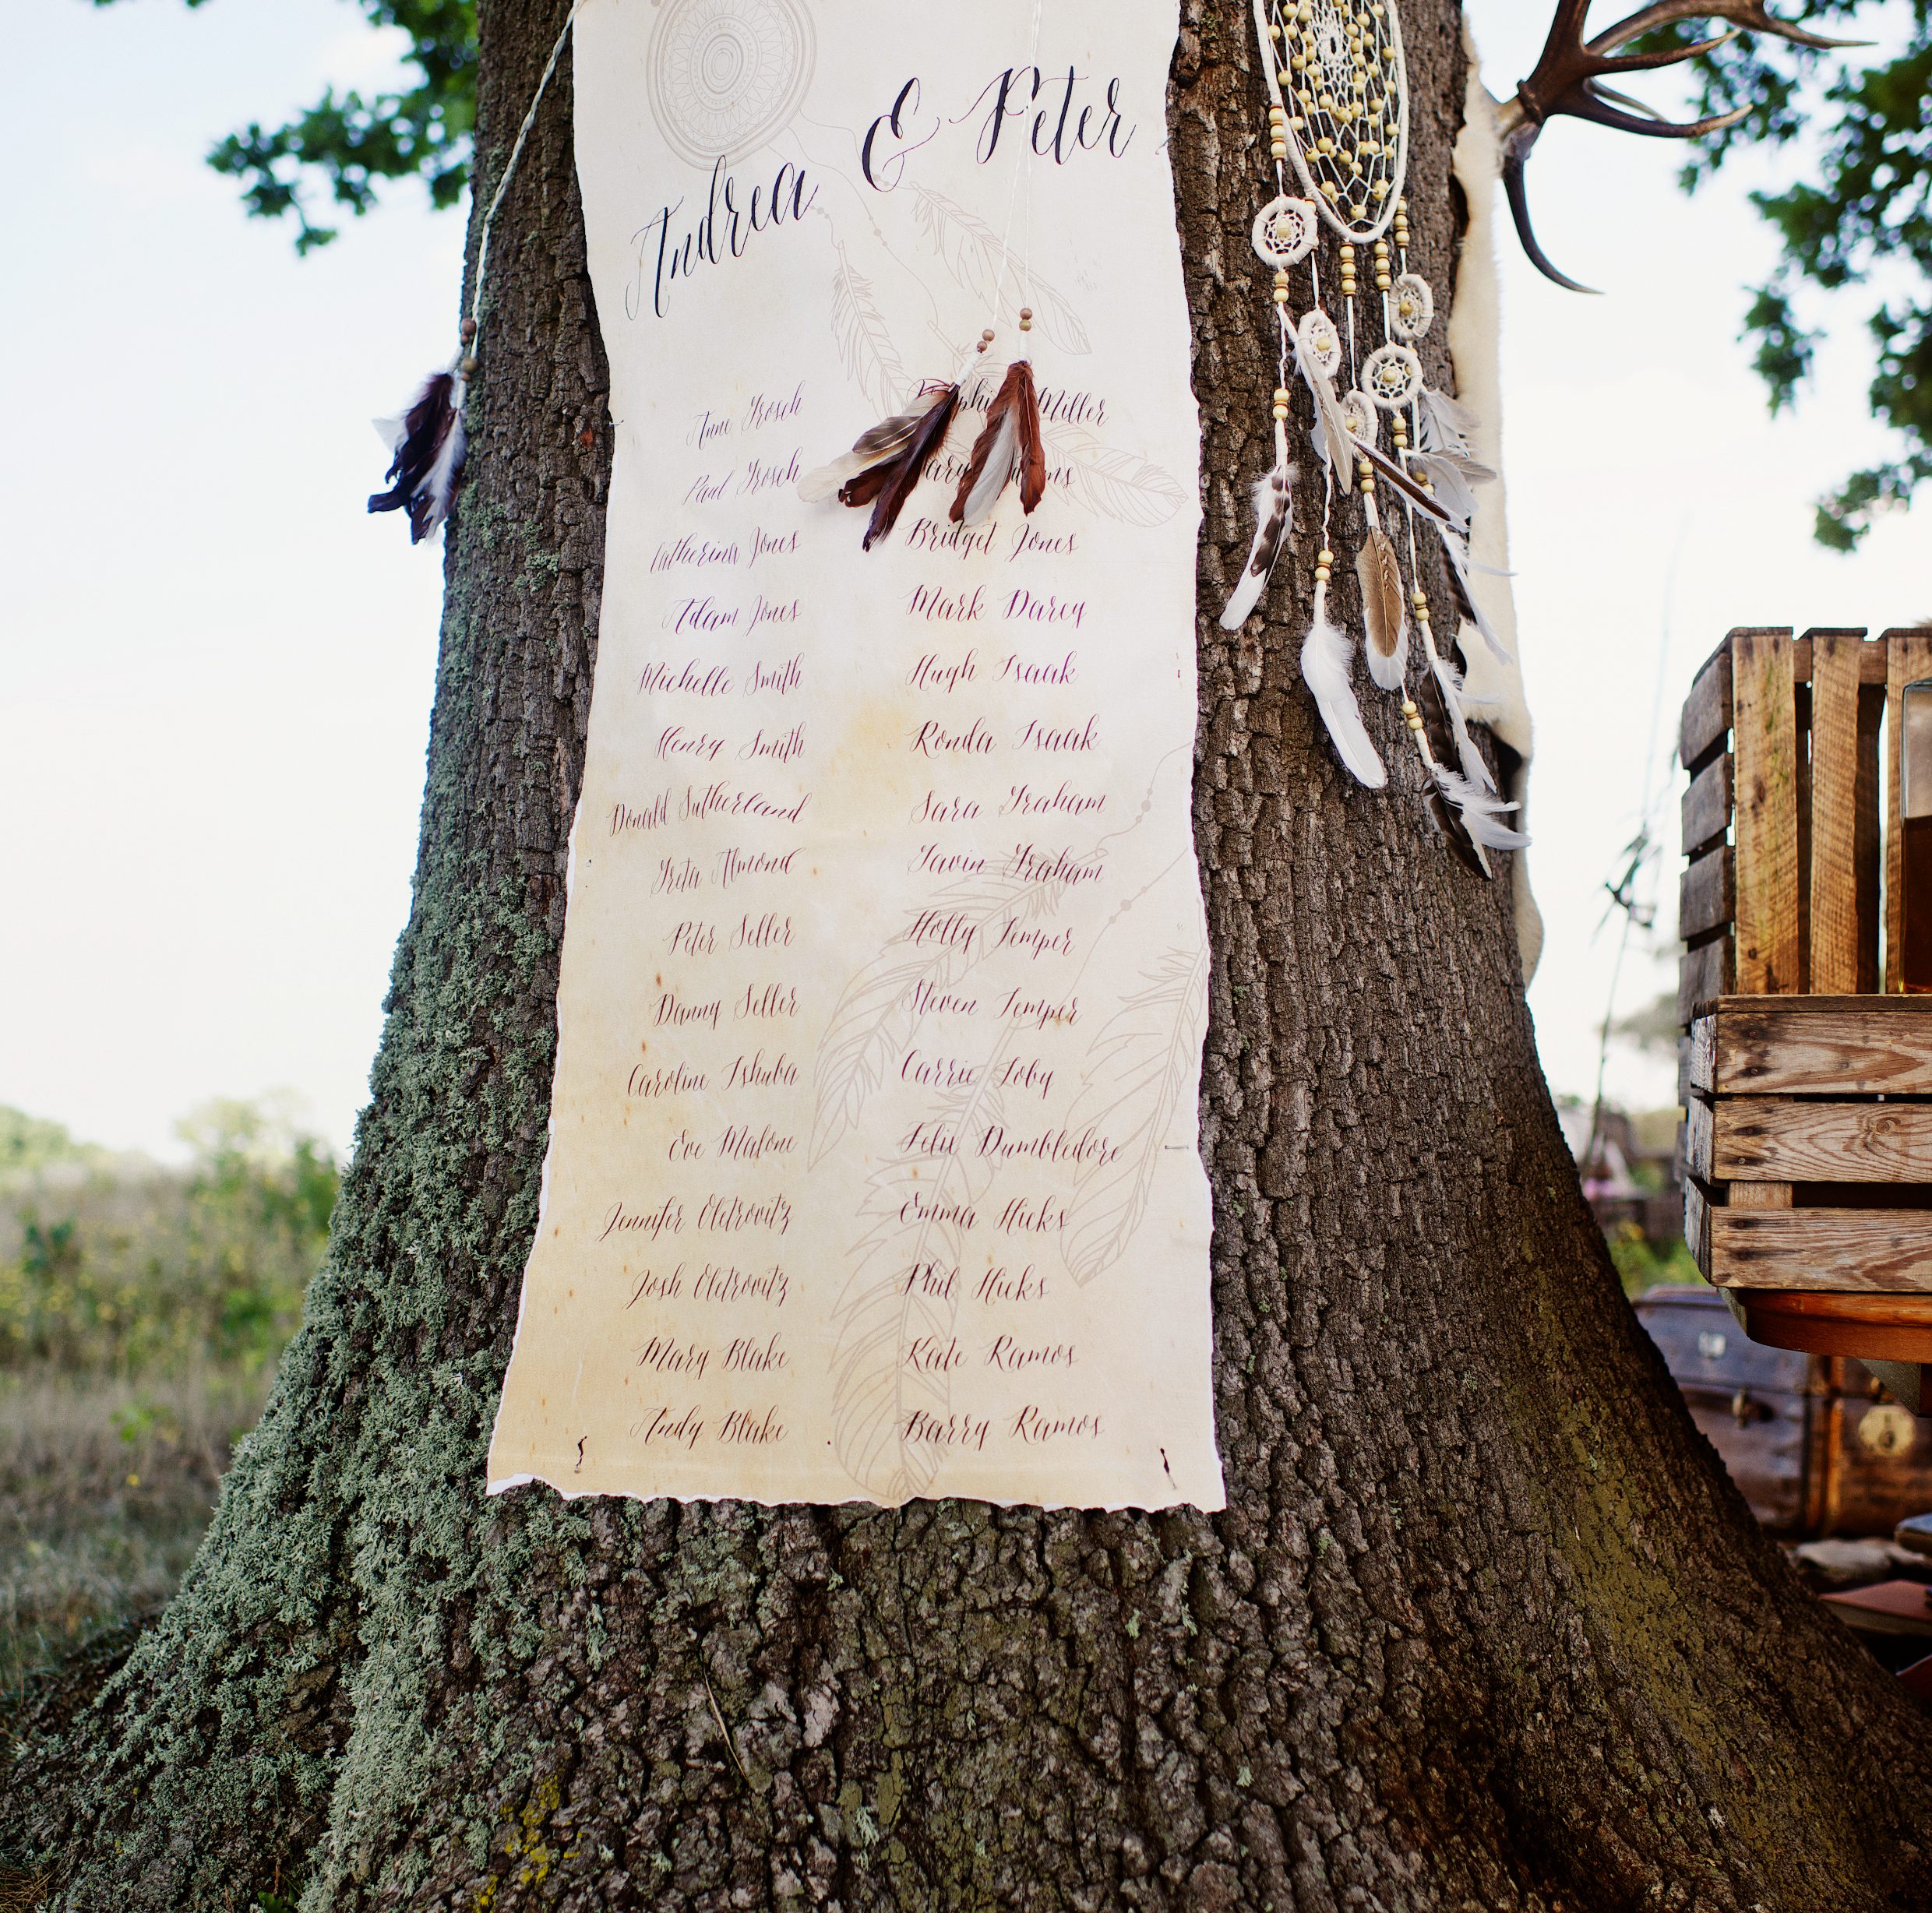 Andrea & Peter
Anne Grosch
Paul Grosch
Catherina Jones
Adam Jones
Michelle Smith
Henry Smith
Donald Sutherland
Greta Almond
Peter Seller
Danny Seller
Caroline Ishuba
Eve Malone
Jennifer Oletrovitz
Josh Oletrovitz
Mary Blake
Andy Blake
Miller
Bridget Jones
Mark Darcy
Hugh Isaak
Ronda Isaak
Sara Graham
Gavin Graham
Holly Semper
Steven Semper
Carrie Loby
Felix Dumbledore
Emma Hicks
Phil Hicks
Kate Ramos
Barry Ramos